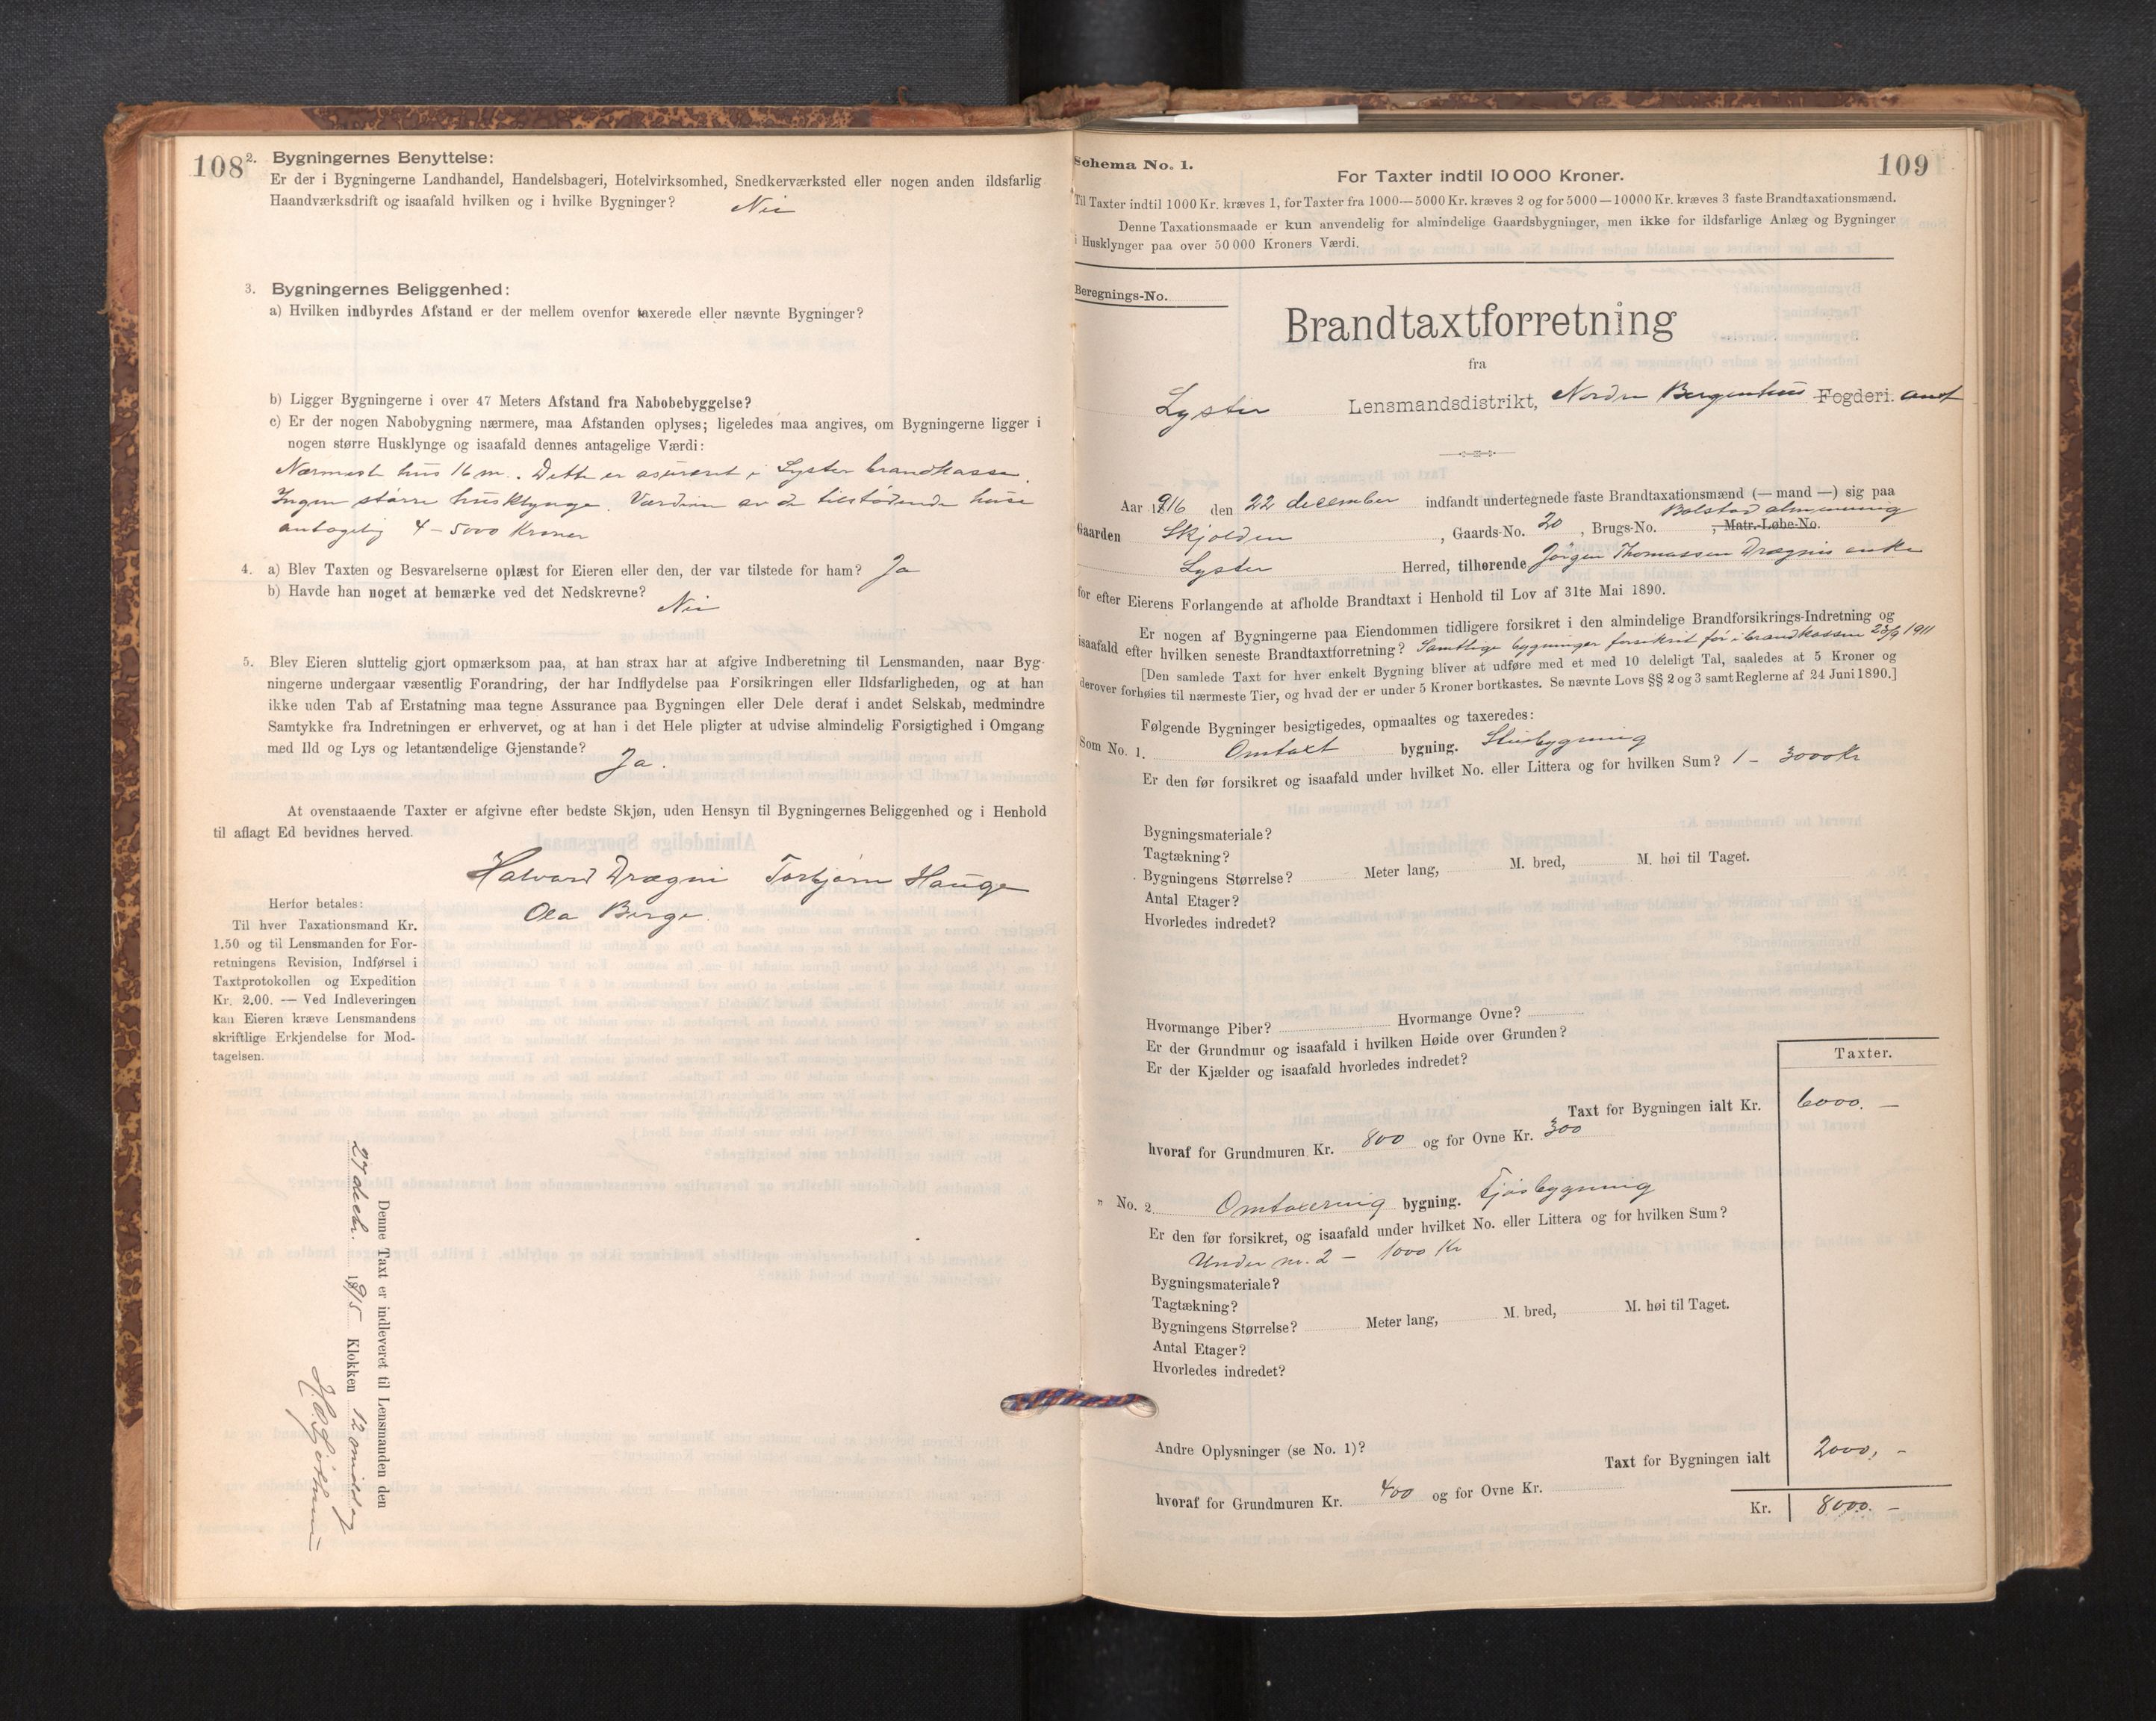 108
2. Bygningernes Benyttelse:
Er der i Bygningerne Landhandel, Handelsbageri, Hotelvirksomhed, Snedkerværksted eller nogen anden ildsfarlig
Haandværksdrift og isaafald hvilken og i hvilke Bygninger? Nei
3. Bygningernes Beliggenhed:
a) Hvilken indbyrdes Afstand er der mellem ovenfor taxerede eller nævnte Bygninger?
b) Ligger Bygningerne i over 47 Meters Afstand fra Nabobebyggelse?
c) Er der nogen Nabobygning nærmere, maa Afstanden oplyses; ligeledes maa angives, om Bygningerne ligger i
nogen større Husklynge og isaafald dennes antagelige Værdi:
Nærmeste hus 16 m. Dette er asureret i Lyster brandkasse.
Ingen større husklynge. Værdien av de tilstødende huse
antagelig 4-5000 Kroner
4. a) Blev Taxten og Besvarelserne oplæst for Eieren eller den, der var tilstede for ham? Ja
b) Havde han noget at bemærke ved det Nedskrevne? Nei
5. Blev Eieren sluttelig gjort opmærksom paa, at han strax har at afgive Indberetning til Lensmanden, naar Byg-
ningerne undergaar væsentlig Forandring, der har Indflydelse paa Forsikringen eller Ildsfarligheden, og at han
ikke uden Tab af Erstatning maa tegne Assurance paa Bygningen eller Dele deraf i andet Selskab, medmindre
Samtykke fra Indretningen er erhvervet, og at han i det Hele pligter at udvise almindelig Forsigtighed i Omgang
med Ild og Lys og letantændelige Gjenstande?
Ja.
At ovenstaaende Taxter er afgivne efter bedste Skjøn, uden Hensyn til Bygningernes Beliggenhed og i Henhold
til aflagt Ed bevidnes herved.
Halvard Drægni Torbjørn Hauge
Ola Berge.
Herfor betales:
Til hver Taxationsmand Kr.
1.50 og til Lensmanden for For-
retningens Revision, Indførsel i
Taxtprotokollen og Expedition
Kr. 2,00. — Ved Indleveringen
kan Eieren kræve Lensmandens
skriftlige Erkjendelse for Mod-
tagelsen.
Denne Taxt er indleveret til Lensmanden den
27 decbr. 1915 Klokken 12 middag
109
Schema No. 1.
For Taxter indtil 10 000 Kroner.
Til Taxter indtil 1000 Kr. kræves 1, for Taxter fra 1000—5000 Kr. kræves 2 og for 5000—10000 Kr. kræves 3 faste Brandtaxationsmænd.
Denne Taxationsmaade er kun anvendelig for almindelige Gaardsbygninger, men ikke for ildsfarlige Anlæg og Bygninger
i Husklynger paa over 50 000 Kroners Værdi.
Beregnings-No.
Brandtaxtforretning
fra
Lyster Lensmandsdistrikt, Nordre Bergenhus Fogderi. amt
Aar 1916 den 22 december indfandt undertegnede faste Brandtaxationsmænd (— mand —) sig paa
Bolstad almenning
Gaarden Skjolden, Gaards-No. 20, Brugs-No. , Matr.-Løbe-No.
Lyster Herred, tilhørende Jørgen Thomassen Drægnis enke
for efter Eierens Forlangende at afholde Brandtaxt i Henhold til Lov af 31te Mai 1890.
Er nogen af Bygningerne paa Eiendommen tidligere forsikret i den almindelige Brandforsikrings-Indretning og
isaafald efter hvilken seneste Brandtaxtforretning? Samtlige bygninger forsikret før i brandkassen 23/9 1911
[Den samlede Taxt for hver enkelt Bygning bliver at udføre med et med 10 deleligt Tal, saaledes at 5 Kroner og
derover forhøies til nærmeste Tier, og hvad der er under 5 Kroner bortkastes. Se nævnte Lovs §§ 2 og 3 samt Reglerne af 24 Juni 1890.]
Følgende Bygninger besigtigedes, opmaaltes og taxeredes:
Som No. 1. Omtaxt bygning. Stuebygning
Er den før forsikret og isaafald under hvilket No. eller Littera og for hvilken Sum? 1 — 3000 Kr
Bygningsmateriale?
Tagtækning?
Bygningens Størrelse? Meter lang, M. bred, M. høi til Taget.
Antal Etager?
Hvorledes indredet?
Hvormange Piber? Hvormange Ovne?
Er der Grundmur og isaafald i hvilken Høide over Grunden?
Er der Kjælder og isaafald hvorledes indredet?
Taxter.
Taxt for Bygningen ialt Kr. 6000. —
hvoraf for Grundmuren Kr. 800 og for Ovne Kr. 300
„ No. 2 Omtaxering bygning. Fjøsbygning
Er den før forsikret, og isaafald under hvilket No. eller Littera og for hvilken Sum?
Under nr. 2 — 1000 Kr
Bygningsmateriale?
Tagtækning?
Bygningens Størrelse? Meter lang, M. bred, M. høi til Taget.
Antal Etager?
Hvorledes indredet?
Andre Oplysninger (se No. 1)?
Taxt for Bygningen ialt 2000, -
hvoraf for Grundmuren Kr. 400 og for Ovne Kr.
Kr. 8000. —